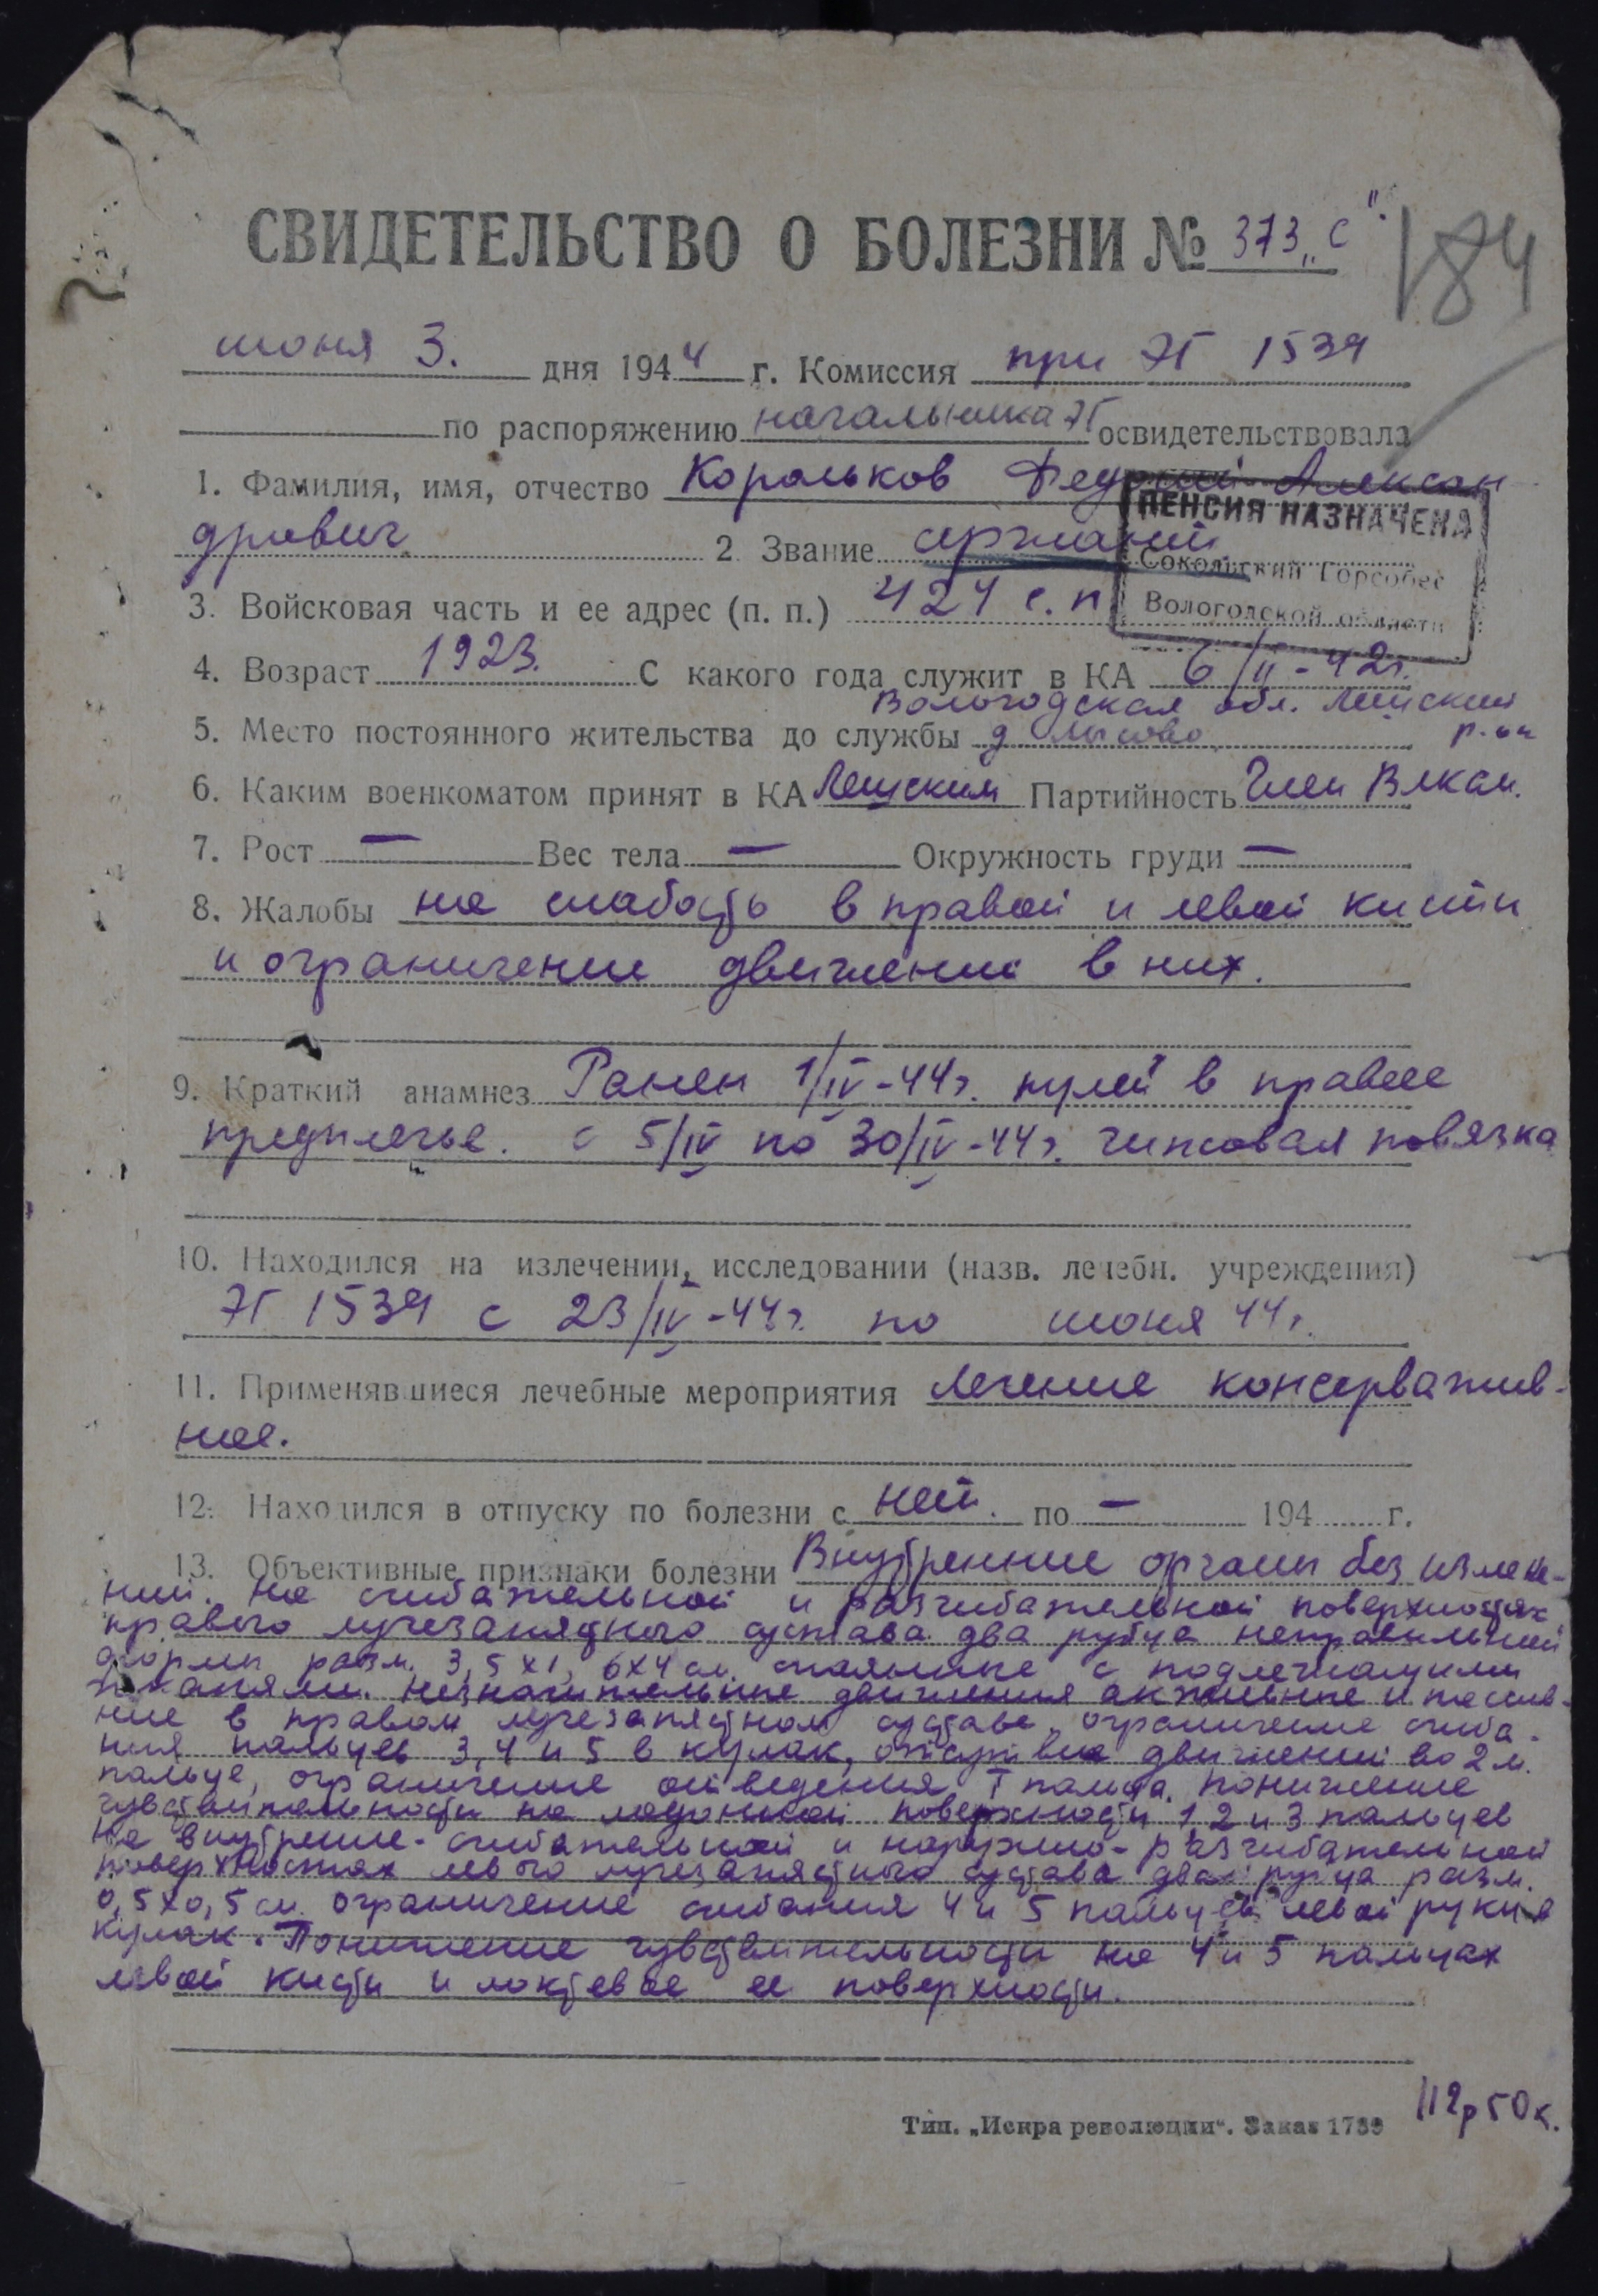 СВИДЕТЕЛЬСТВО О БОЛЕЗНИ № 373 „С“.
184
июня 3. дня 1944 г. Комиссия при ЭГ 1539
по распоряжению начальника ЭГ освидетельствовала
1. Фамилия, имя, отчество Корольков Алексан
дрович 2 Звание сержант
ПЕНСИЯ НАЗНАЧЕНА
Сокольский Горсобес
Вологодской области
3. Войсковая часть и ее адрес (п. п.) 424 с.п
4. Возраст 1923. С какого года служит в КА 6/II-42г.
Вологодская обл. Лежский
5. Место постоянного жительства до службы д Лысово р-он
6. Каким военкоматом принят в КА Лежским Партийность Член Влксм.
7. Рост — Вес тела — Окружность груди —
8. Жалобы на слабость в правой и левой кисти
и ограничение движений в них.
9. Краткий анамнез Ранен 1/IV-44г. пулей в правое
предплечье. с 5/IV по 30/IV-44г. гипсовая повязка
10. Находился на излечении, исследовании (назв. лечебн. учреждения)
ЭГ 1539 с 23/IV-44г. по июня 44г.
11. Применявшиеся лечебные мероприятия лечение консерватив-
ное.
12. Находился в отпуску по болезни с нет. по — 194 г.
13. Объективные признаки болезни Внутренние органы без измене-
ний. На сгибательной и разгибательной поверхностях
правого лучезапястного сустава два рубца неправильной
формы разм. 3,5х1, 6х4 см. спаянные с подлежащими
тканями. Незначительные движения активные и пассив-
ные в правом лучезапястном суставе, ограничение сгиба-
ния пальцев 3,4 и 5 в кулак, отсутствие движений во 2 м.
пальце, ограничение отведения I пальца. Понижение
чувствительности на ладонной поверхности 1,2 и 3 пальцев
На внутренне-сгибательной и наружно-разгибательной
поверхностях левого лучезапястного сустава два рубца разм.
0,5х0,5 см. ограничение сгибания 4 и 5 пальцев левой руки в
кулак. Понижение чувствительности на 4 и 5 пальцах
левой кисти и локтевое ее поверхности.
Тип. „Искра революции“. Заказ 1739
112р50к.